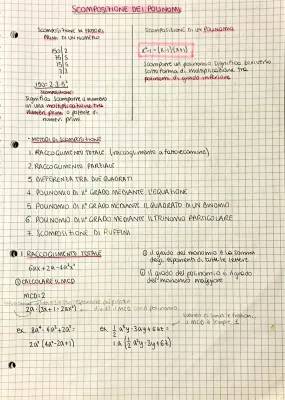 SCOMPOSIZIONE DEI POLINOMI
SCOMPOSIZIONE IN FATTORI
PRIMI DI UN NUMERO
150 | 2
75 | 5
15 | 5
3 | 3
1
150 = 2·3·5²
Scomposizione:
Significa scomporre il numero
in una moltiplicazione tra
numeri primi o potenze di
numeri primi
SCOMPOSIZIONE DI UN POLINOMIO
x²-1 = (x-1)(x+1)
Scomporre un polinomio significa scriverlo
sotto forma di moltiplicazione tra
polinomi di grado inferiore
METODI DI SCOMPOSIZIONE
1. RACCOGLIMENTO TOTALE (raccoglimento a fattore comune)
2. RACCOGLIMENTO PARZIALE
3. DIFFERENZA TRA DUE QUADRATI
4. POLINOMIO DI II° GRADO MEDIANTE L'EQUAZIONE
5. POLINOMIO DI II° GRADO MEDIANTE IL QUADRATO DI UN BINOMIO
6. POLINOMIO DI II° GRADO MEDIANTE IL TRINOMIO PARTICOLARE
7. SCOMPOSIZIONE DI RUFFINI
1. RACCOGLIMENTO TOTALE
6ax + 2a - 4a²x²
① CALCOLARE IL MCD
MCD = 2
2a · (3x + 1 - 2ax²)
① il grado del monomio è la somma
degli esponenti di tutte le lettere
② il grado del polinomio è il grado
del monomio maggiore
ex. 8a⁴ - 6a³ + 2a² =
2a² (4a² - 2a + 1)
ex.